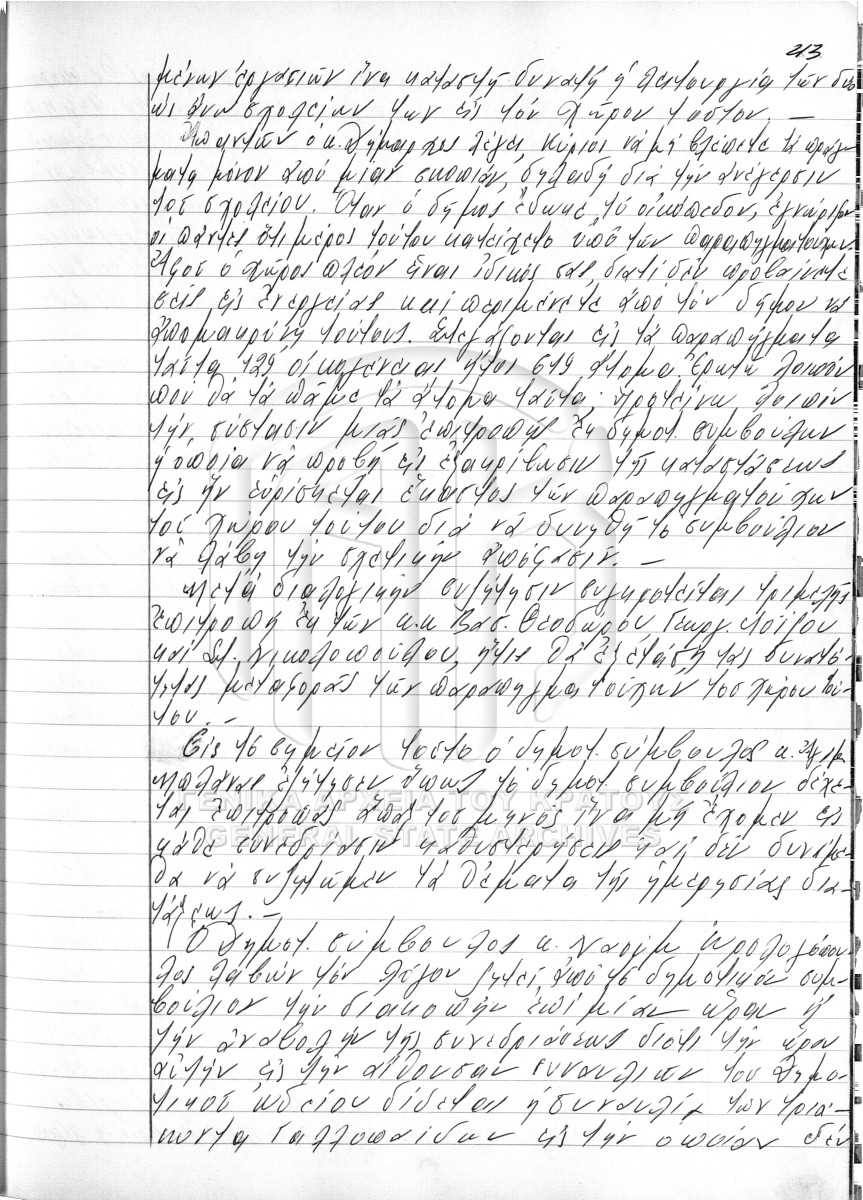 213
μένων ἐργασιῶν ἵνα καταστῇ δυνατή ἡ λειτουργία τῶν δύο
ὡς ἄνω σχολείων των εἰς τόν χῶρον τοῦτον. —
Ἀπαντῶν ὁ κ. Δήμαρχος λέγει, κύριοι νά μή βλέπετε τά πράγ-
ματα μόνον ἀπό μίαν σκοπιάν, δηλαδή διά τήν ἀνέγερσιν
τοῦ σχολείου. Ὅταν ὁ δῆμος ἔδωκε τό οἰκόπεδον, ἐγνώριζον
οἱ πάντες ὅτι μέρος τούτου κατείχετο ὑπό τῶν παραπηγματούχων.
Ἀφοῦ ὁ χῶρος πλέον εἶναι ἰδικός σας διατί δέν προβαίνετε
σεῖς εἰς ἐνεργείας καί περιμένετε ἀπό τόν δῆμον νά
ἀπομακρύνῃ τούτους. Στεγάζονται εἰς τά παραπήγματα
ταῦτα 129 οἰκογένειαι ἤτοι 619 ἄτομα. Ἐρωτῶ λοιπόν
ποῦ θά τά πᾶμε τά ἄτομα ταῦτα; Προτείνω λοιπόν
τήν σύστασιν μιᾶς ἐπιτροπῆς ἐκ δημοτ. συμβούλων
ἡ ὁποία νά προβῇ εἰς ἐξακρίβωσιν τῆς καταστάσεως
εἰς ἥν εὑρίσκεται ἕκαστος τῶν παραπηγματούχων
τοῦ χώρου τούτου διά νά δυνηθῇ τό συμβούλιον
νά λάβῃ τήν σχετικήν ἀπόφασιν. —
Μετά διαλογικήν συζήτησιν συγκροτεῖται τριμελής
ἐπιτροπή ἐκ τῶν κ.κ Βασ. Θεοδώρου, Γεωργ. Λοΐζου
καί Στ. Νικολοπούλου, ἥτις θά ἐξετάσῃ τάς δυνατό-
τητας μεταφορᾶς τῶν παραπηγματούχων τοῦ χώρου τού-
του. —
Εἰς τό σημεῖον τοῦτο ὁ δημοτ. σύμβουλος κ.
ἐζήτησεν ὅπως τό δημοτ. συμβούλιον δέχε-
ται ἐπιτροπάς ἅπαξ τοῦ μηνός ἵνα μή ἔχομεν εἰς
κάθε συνεδρίασιν καθυστερήσεις καί δέν δυνάμε-
θα νά συζητῶμεν τά θέματα τῆς ἡμερησίας δια-
τάξεως. —
Ὁ Δημοτ. σύμβουλος κ. Ναούμ Ὡρολογόπου-
λος λαβών τόν λόγον ζητεῖ ἀπό τό δημοτικόν συμ-
βούλιον τήν διακοπήν ἐπί μίαν ὥραν ἤ
τήν ἀναβολήν τῆς συνεδριάσεως διότι τήν ὥραν
αὐτήν εἰς τήν αἴθουσαν συναυλιῶν τοῦ Δημο-
τικοῦ ὠδείου δίδεται ἡ συναυλία τῶν τριά-
κοντα Γαλλοπαίδων εἰς τήν ὁποίαν δέν
ΓΕΝΙΚΑ ΑΡΧΕΙΑ ΤΟΥ ΚΡΑΤΟΥΣ
GENERAL STATE ARCHIVES